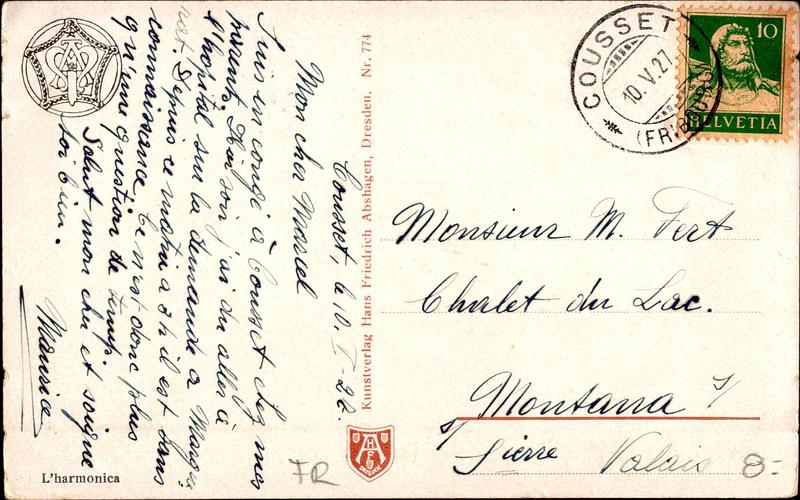 Cousset, le 10. V - 27.
Mon cher Marcel
Suis en congé à Cousset chez mes
parents. Hier soir j'ai du aller à
l'hôpital sur la demande à
Depuis ce matin à 3 h il est sans
connaissance. Ce n'est donc plus
qu'une question de temps.
Salut mon cher et soigne
toi bien.
Maurice
L'harmonica
Kunstverlag Hans Friedrich Abshagen, Dresden. Nr. 774
AHF
DRESDEN
COUSSET
10. V. 27
(FRIBOURG)
10
HELVETIA
Monsieur M. Fert
Chalet du Lac.
Montana s/
s/ Sierre Valais
FR
8.-